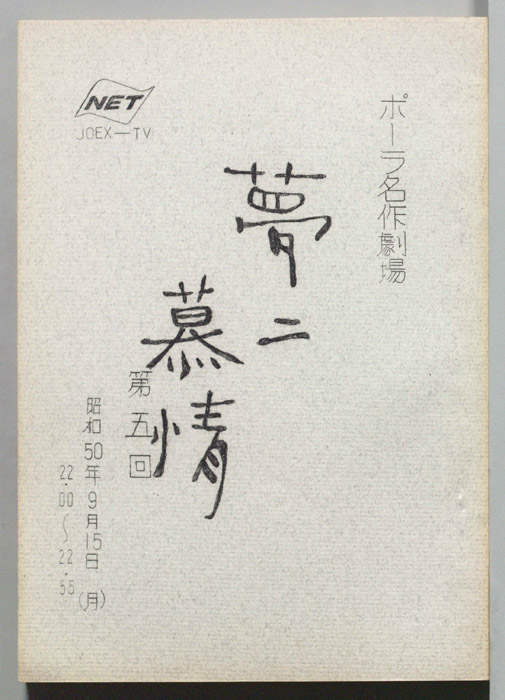 ポーラ名作劇場
夢二
慕情
第五回
昭和50年9月15日(月)
22.00〜22.55
NET
JOEX—TV